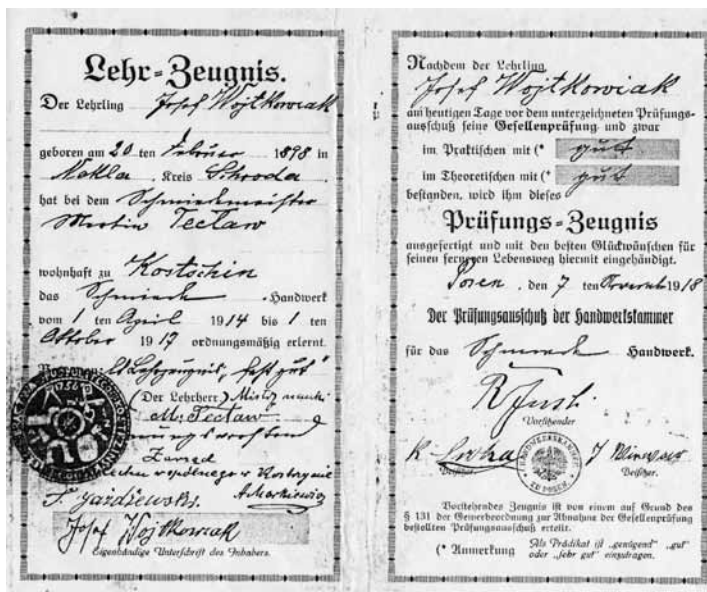 Lehr-Zeugnis.
Der Lehrling Josef Wojtkowiak
geboren am 20 ten Februar 1898 in
Nekla Kreis Schroda
hat bei dem Schmiedemeister
Martin Teclaw
wohnhaft zu Kostschin
das Schmiede Handwerk
vom 1 ten April 1914 bis 1 ten
Oktober 1917 ordnungsmäßig erlernt.
gut"
(Der Lehrherr.)
M. Teclaw
Zarząd
Josef Wojtkowiak
Eigenhändige Unterschrift des Inhabers.
Nachdem der Lehrling
Josef Wojtkowiak
am heutigen Tage vor dem unterzeichneten Prüfungs-
ausschuß seine Gesellenprüfung und zwar
im Praktischen mit (* gut
im Theoretischen mit (* gut
bestanden, wird ihm dieses
Prüfungs-Zeugnis
ausgefertigt und mit den besten Glückwünschen für
seinen ferneren Lebensweg hiermit eingehändigt.
Posen, den 7 ten November 1918
Der Prüfungsausschuß der Handwerkskammer
für das Schmiede Handwerk.
Vorsitzender
HANDWERKSKAMMER
ZU POSEN
Beisitzer. Beisitzer.
Vorstehendes Zeugnis ist von einem auf Grund des
§ 131 der Gewerbeordnung zur Abnahme der Gesellenprüfung
bestellten Prüfungsausschuß erteilt.
(* Anmerkung Als Prädikat ist „genügend" „gut"
oder „sehr gut" einzutragen.